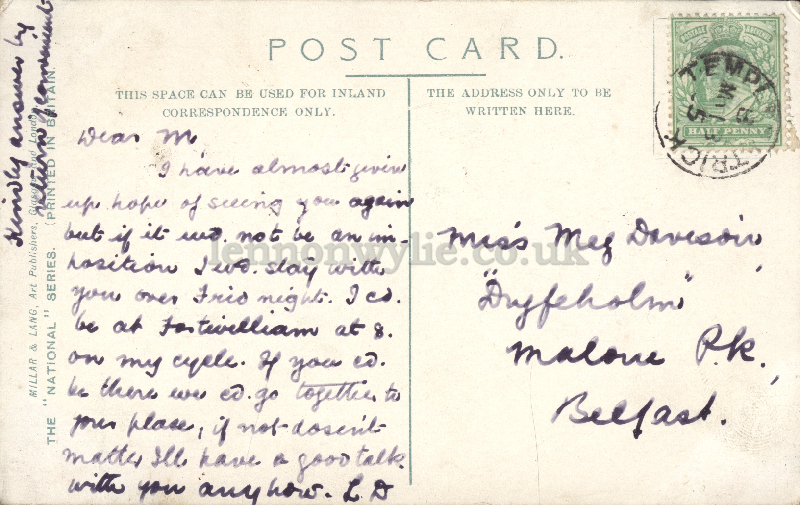 POST CARD.
THIS SPACE CAN BE USED FOR INLAND
CORRESPONDENCE ONLY.
THE ADDRESS ONLY TO BE
WRITTEN HERE.
POSTAGE REVENUE
HALF PENNY
TEMPLEPATRICK
Kindly answer by
return if convenient
MILLAR & LANG, Art Publishers, Glasgow and London
THE "NATIONAL" SERIES. (PRINTED IN BRITAIN.
Dear M
I have almost given
up hope of seeing you again
but if it wd. not be an im-
position I wd. stay with
you over Frid night. I cd.
be at Fortwilliam at 8.
on my cycle. If you cd.
be there we cd. go together to
your place, if not doesn't
matter I'll have a good talk
with you anyhow. L D
Miss Meg Davison
"Dryfeholm"
Malone P.k.,
Belfast.
lennonwylie.co.uk